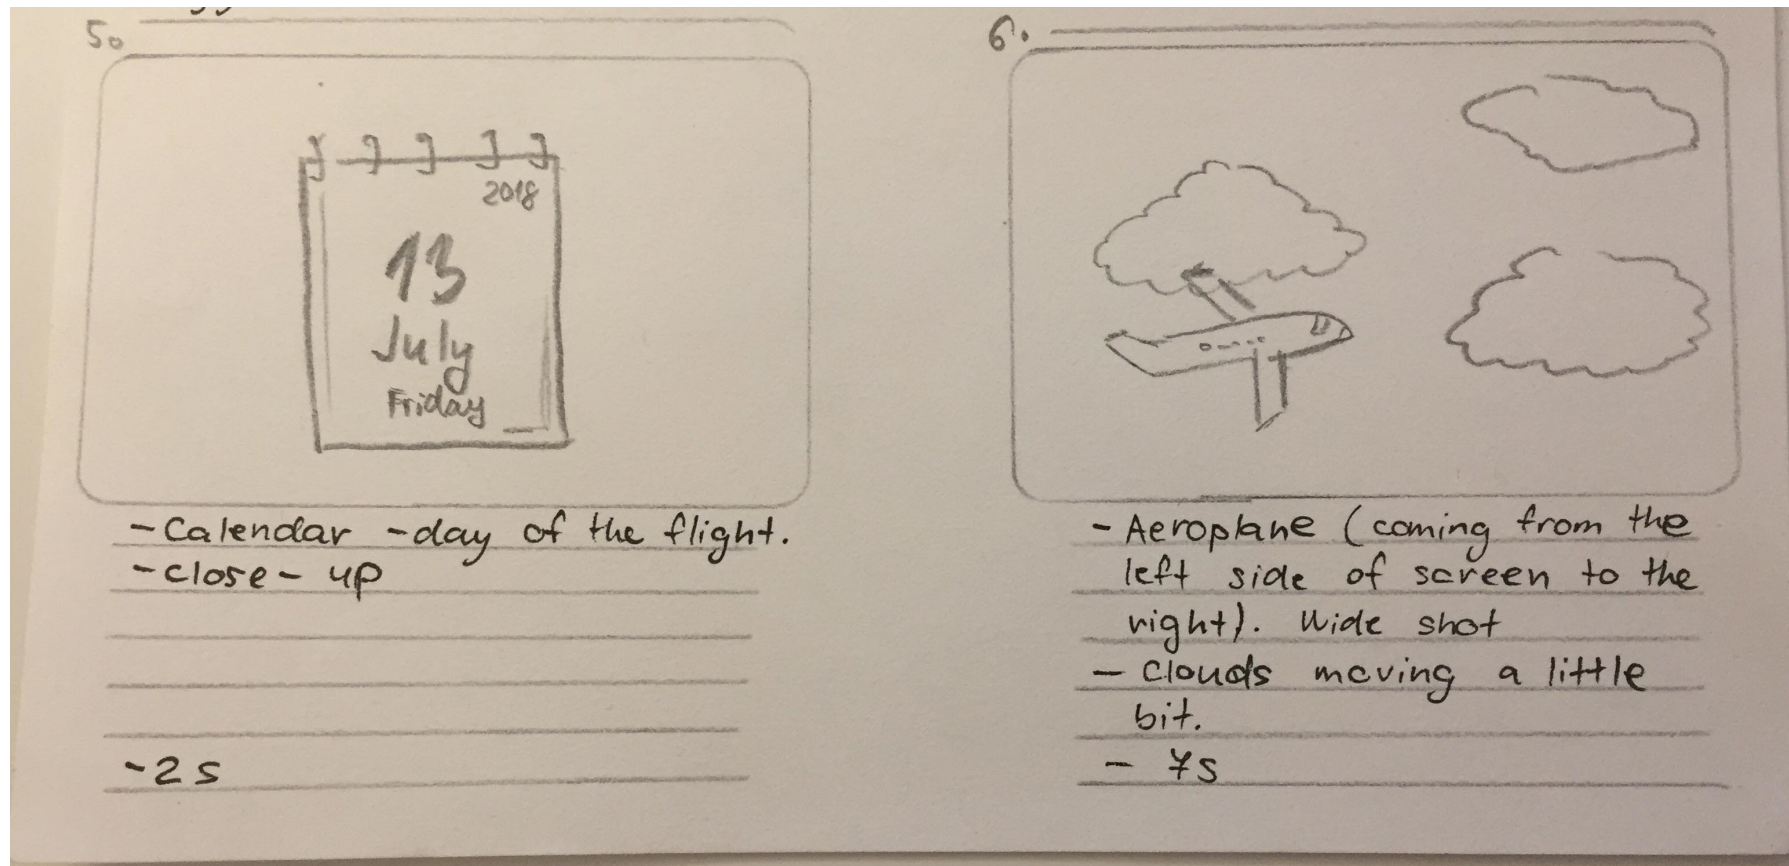 5.
2018
13
July
Friday
- Calendar - day of the flight.
- close - up
- 2 s
6.
- Aeroplane (coming from the
left side of screen to the
right). Wide shot
- Clouds moving a little
bit.
- 7s